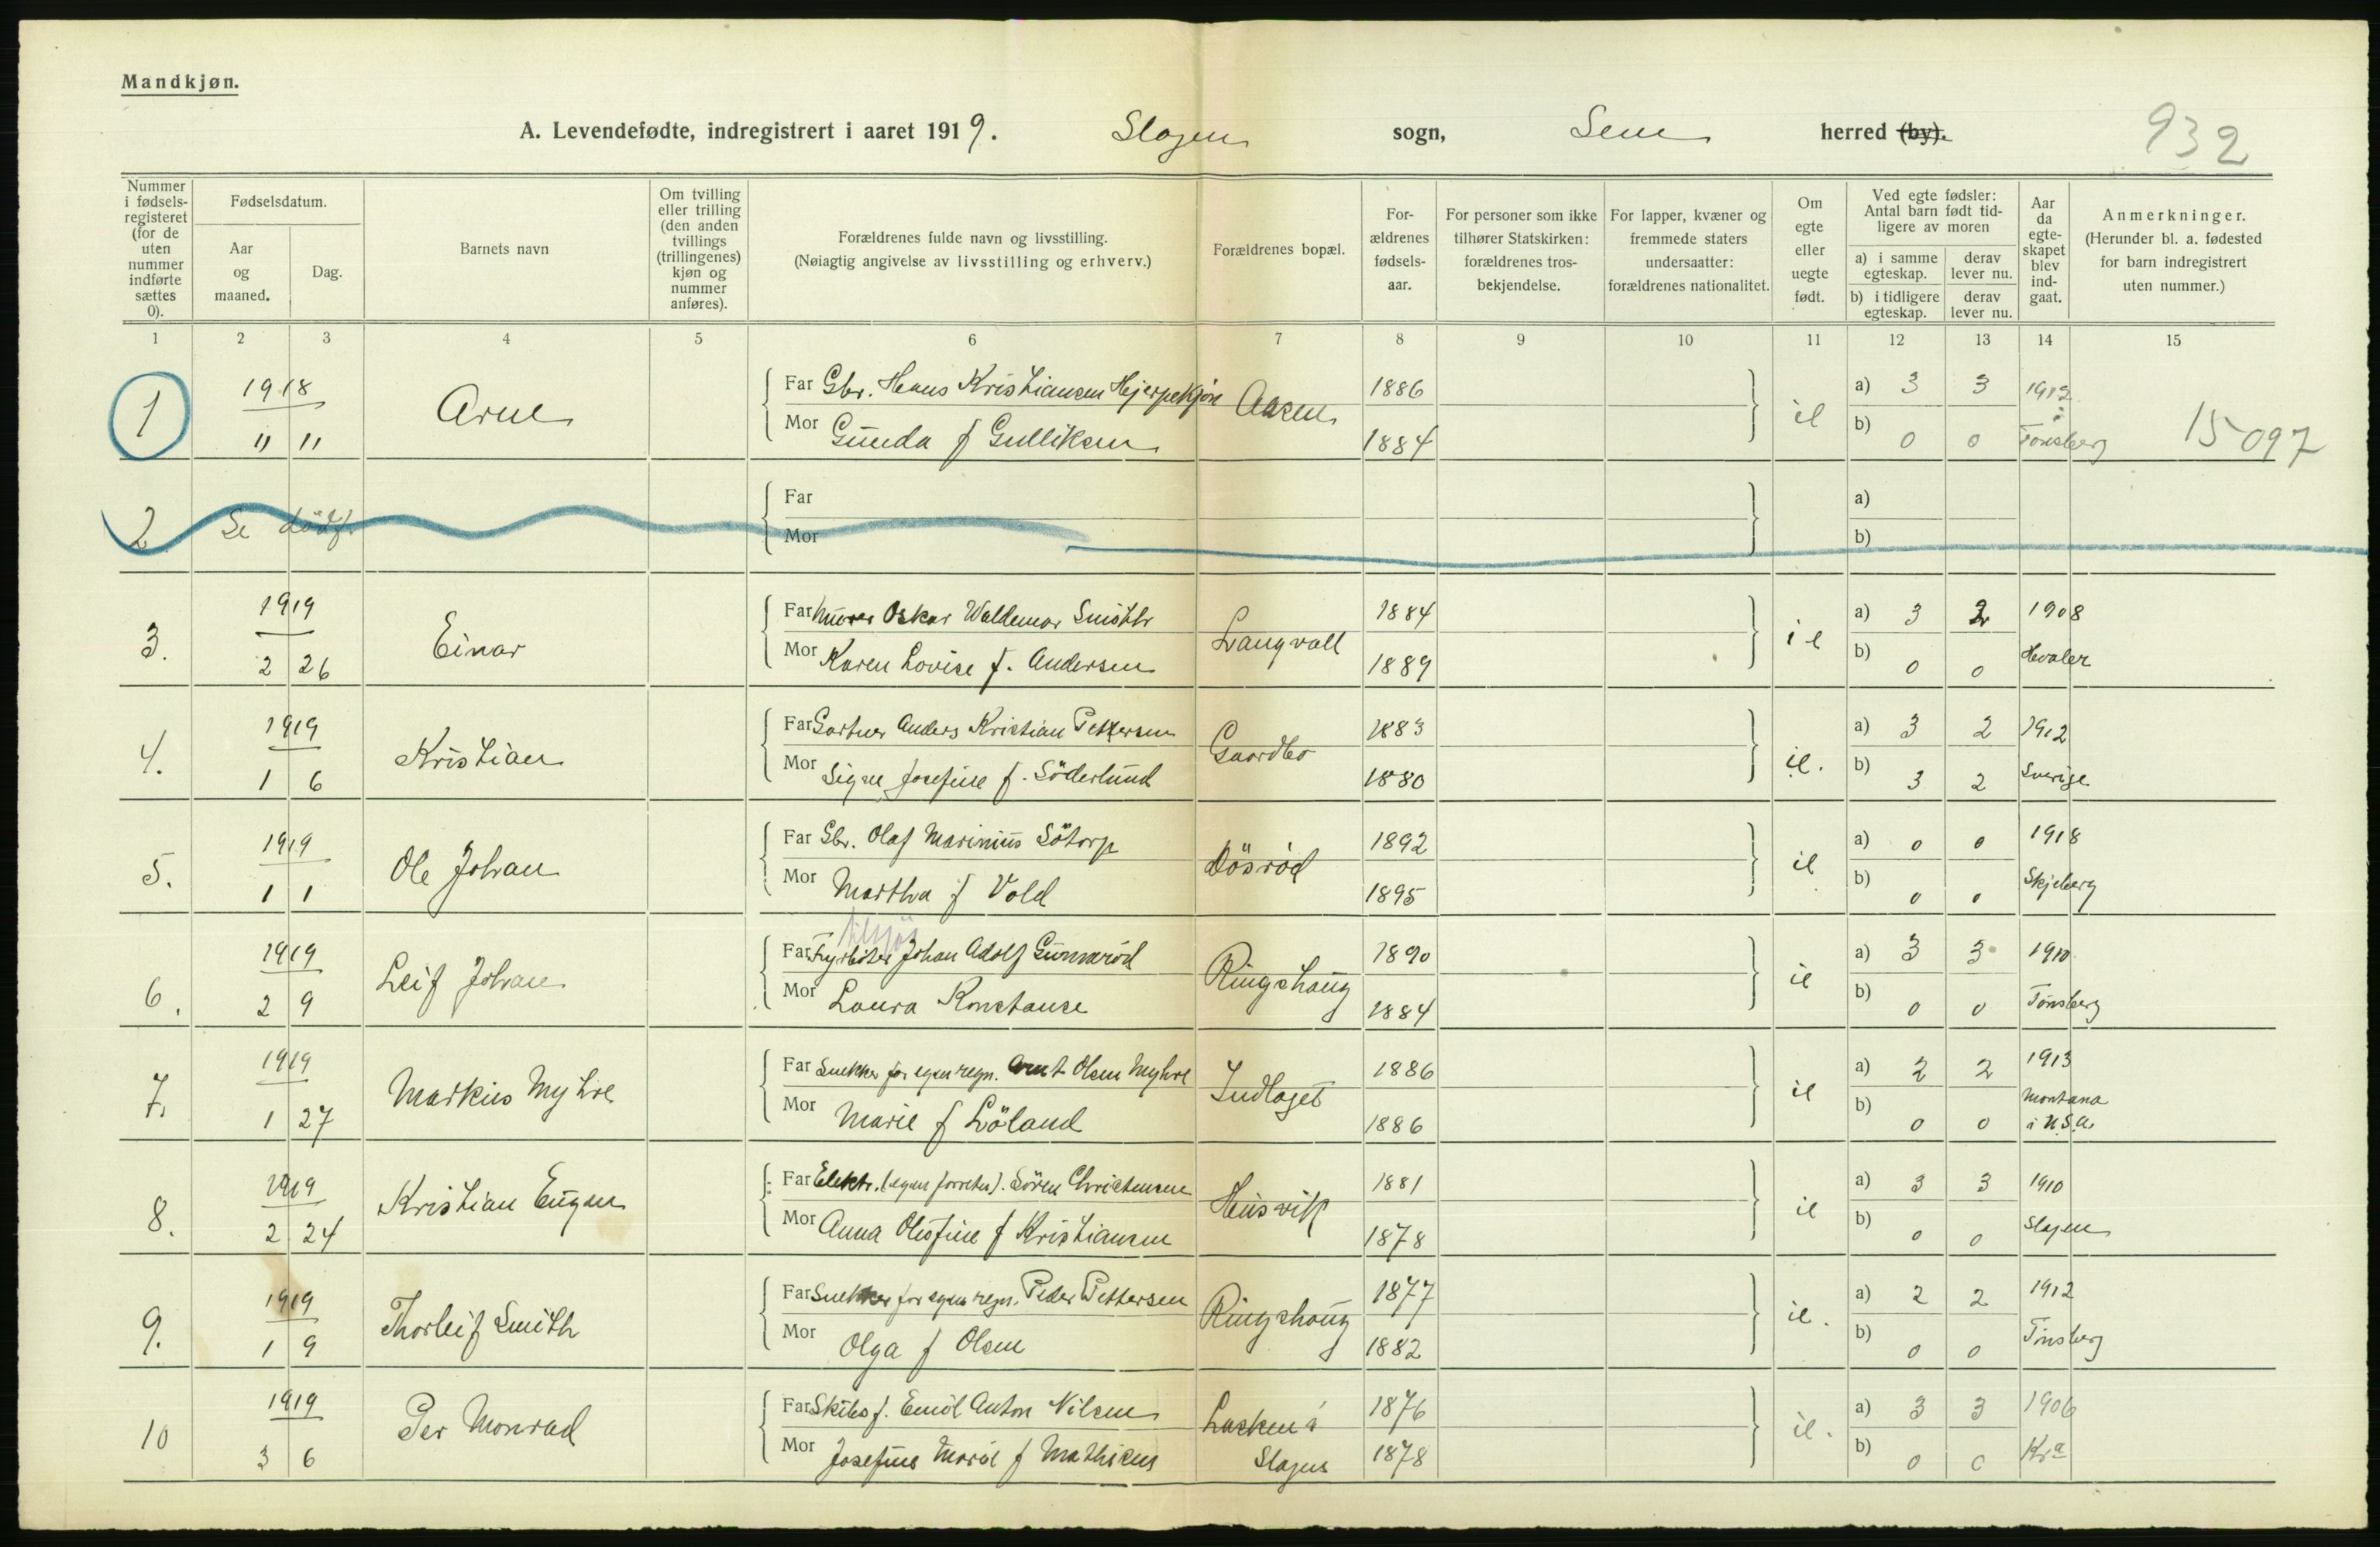 Mandkjøn.
A. Levendefødte, indregistrert i aaret 1919. Slagen sogn, Sem herred (by).
932
Nummer i fødsels-registeret (for de uten nummer indførte sættes 0).
Fødselsdatum.
Aar og maaned.
Dag.
Barnets navn
Om tvilling eller trilling (den anden tvillings (trillingenes) kjøn og nummer anføres).
Forældrenes fulde navn og livsstilling.
(Nøiagtig angivelse av livsstilling og erhverv.)
Forældrenes bopæl.
For-ældrenes fødsels-aar.
For personer som ikke tilhører Statskirken: forældrenes tros-bekjendelse.
For lapper, kvæner og fremmede staters undersaatter: forældrenes nationalitet.
Om egte eller uegte født.
Ved egte fødsler: Antal barn født tid-ligere av moren
a) i samme egteskap.
derav lever nu.
b) i tidligere egteskap.
derav lever nu.
Aar da egte-skapet blev ind-gaat.
Anmerkninger.
(Herunder bl. a. fødested for barn indregistrert uten nummer.)
1 2 3 4 5 6 7 8 9 10 11 12 13 14 15
1 1918 Arne Far Gbr. Hans Kristiansen Hjerpekjøn Aasen 1886 il a) 3 3 1912
11 11 Mor Gunda f Gulliksen 1884 b) 0 0 i Tønsberg 15097
2 Se dödf. Far a)
Mor b)
3. 1919 Einar Far Murer Oskar Waldemar Smith Langvall 1884 il a) 3 2 1908
2 26 Mor Karen Lovise f. Andersen 1889 b) 0 0 Hvaler
4. 1919 Kristian Far Gartner Anders Kristian Pettersen Gaardbo 1883 il. a) 3 2 1912
1 6 Mor Signe Josefine f. Söderlund 1880 b) 3 2 Sverige
5. 1919 Ole Johan Far Gbr. Olaf Marinius Sötorp Dösröd 1892 il a) 0 0 1918
1 1 Mor Martha f Vold 1895 b) 0 0 Skjeberg
tilsjös
6. 1919 Leif Johan Far Fyrböter Johan Adolf Gunnaröd Ringshaug 1890 il a) 3 3 1910
2 9 Mor Laura Konstanse 1884 b) 0 0 Tönsberg
7. 1919 Markus Myhre Far Snekker for egen regn. Arnt Olsen Myhre Indlaget 1886 il a) 2 2 1913
1 27 Mor Marie f Löland 1886 b) 0 0 Montana i U.S.A.
8. 1919 Kristian Eugen Far Elektr. (egen forretn). Sören Christensen Husvik 1881 il a) 3 3 1910
2 24 Mor Anna Olefine f Kristiansen 1878 b) 0 0 Slagen
9. 1919 Thorleif Smith Far Snekker for egen regn. Peder Pettersen Ringshaug 1877 il. a) 2 2 1912
1 9 Mor Olga f Olsen 1882 b) 0 0 Tønsberg
10 1919 Per Monrad Far Skibsf. Emil Anton Nilsen Lasken i 1876 il. a) 3 3 1906
3 6 Mor Josefine Marie f Mathisen Slagen 1878 b) 0 0 Kra